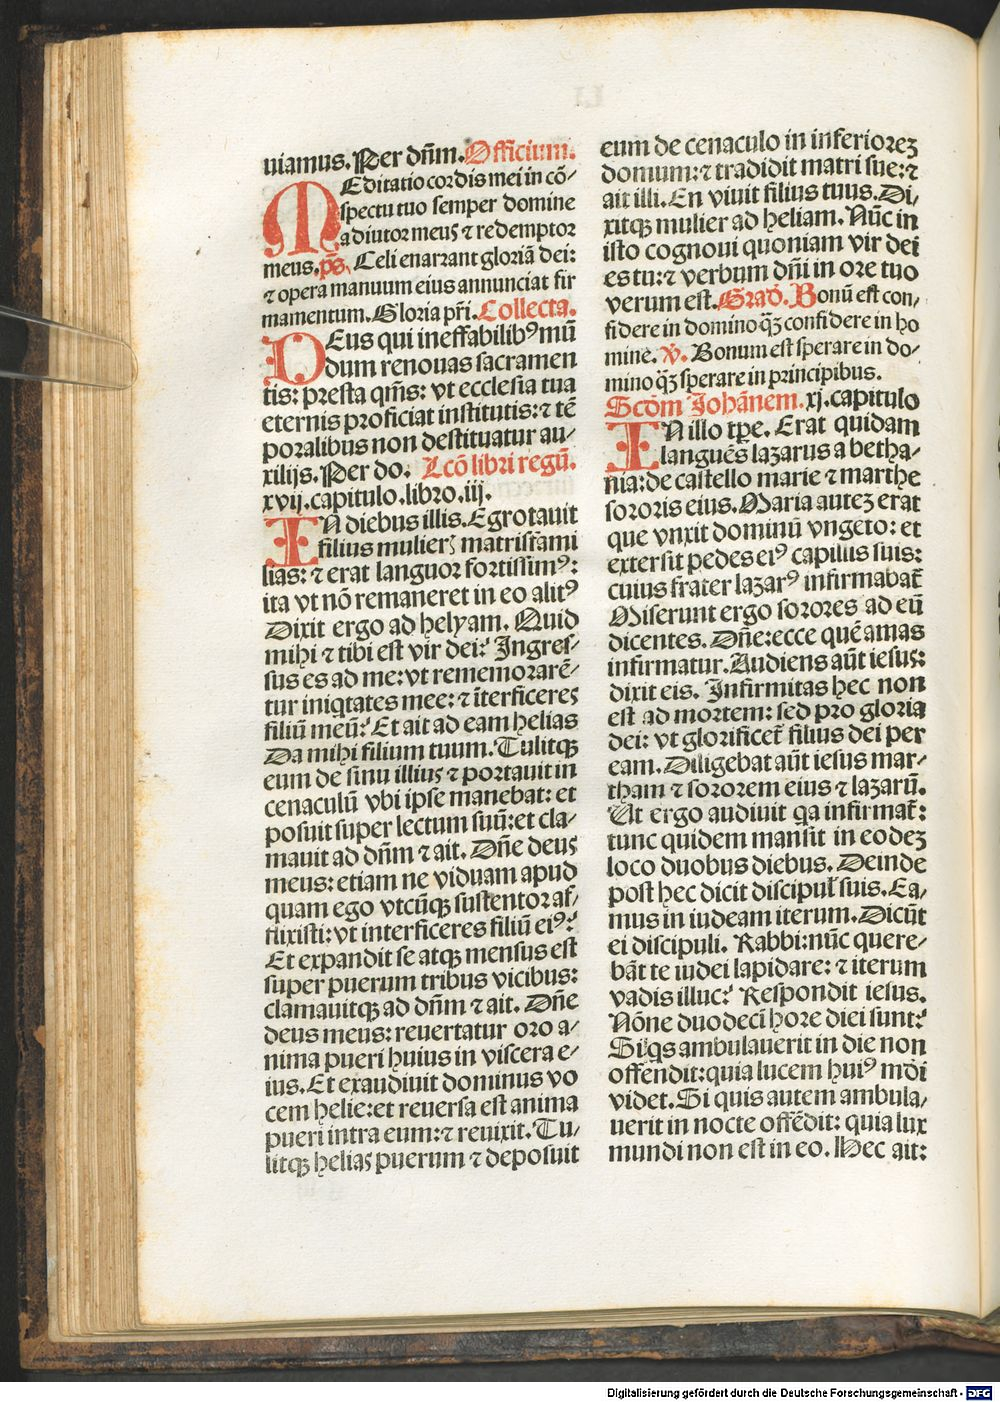 uiamus. Per dñm. Officium.
MEditatio cordis mei in cõ⸗
spectu tuo semper domine
adiutor meus ⁊ redemptor
meus. ps̃. Celi enarrant gloriã dei:
⁊ opera manuum eius annunciat fir
mamentum. Gloria pr̃i. Collecta.
DEus qui ineffabilibꝰ mũ
dum renouas sacramen
tis: presta qm̃s: vt ecclesia tua
eternis proficiat institutis: ⁊ tẽ
poralibus non destituatur au⸗
xilijs. Per do. Lcõ libri regũ.
xvij. capitulo. libro. iij.
IN diebus illis. Egrotauit
filius mulierꝭ matrisfãmi
lias: ⁊ erat languor fortissimꝰ:
ita vt nõ remaneret in eo alitꝰ
Dixit ergo ad helyam. Quid
mihi ⁊ tibi est vir dei? Ingres⸗
sus es ad me: vt rememorarẽ⸗
tur iniqtates mee: ⁊ ĩterficeres
filiũ meũ? Et ait ad eam helias
Da mihi filium tuum. Tulitqꝫ
eum de sinu illius ⁊ portauit in
cenaculũ vbi ipse manebat: et
posuit super lectum suũ: et cla⸗
mauit ad dñm ⁊ ait. Dñe deus
meus: etiam ne viduam apud
quam ego vtcũqꝫ sustentor af⸗
flixisti: vt interficeres filiũ eiꝰ?
Et expandit se atqꝫ mensus est
super puerum tribus vicibus:
clamauitqꝫ ad dñm ⁊ ait. Dñe
deus meus: reuertatur oro a⸗
nima pueri huius in viscera e⸗
ius. Et exaudiuit dominus vo
cem helie: et reuersa est anima
pueri intra eum: ⁊ reuixit. Tu⸗
litqꝫ helias puerum ⁊ deposuit
eum de cenaculo in inferioreꝫ
domum: ⁊ tradidit matri sue: ⁊
ait illi. En viuit filius tuus. Di⸗
xitqꝫ mulier ad heliam. Nũc in
isto cognoui quoniam vir dei
es tu: ⁊ verbum dñi in ore tuo
verum est. Grad̃. Bonũ est con⸗
fidere in domino qꝫ̃ confidere in ho
mine. ℣. Bonum est sperare in do⸗
mino qꝫ̃ sperare in principibus.
Scd̃m Johãnem. xj. capitulo
IN illo tp̃e. Erat quidam
languẽs lazarus a betha⸗
nia: de castello marie ⁊ marthe
sororis eius. Maria auteꝫ erat
que vnxit dominũ vngẽto: et
extersit pedes eiꝰ capillis suis:
cuius frater lazarꝰ infirmabat̃
Miserunt ergo sorores ad eũ
dicentes. Dñe: ecce quẽ amas
infirmatur. Audiens aũt iesus:
dixit eis. Infirmitas hec non
est ad mortem: sed pro gloria
dei: vt glorificet̃ filius dei per
eam. Diligebat aũt iesus mar⸗
tham ⁊ sororem eius ⁊ lazarũ.
Ut ergo audiuit qa infirmat̃:
tunc quidem mansit in eodeꝫ
loco duobus diebus. Deinde
post hec dicit discipul̃ suis. Ea⸗
mus in iudeam iterum. Dicũt
ei discipuli. Rabbi: nũc quere⸗
bãt te iudei lapidare: ⁊ iterum
vadis illuc? Respondit iesus.
Nõne duodecĩ hore diei sunt?
Siqs ambulauerit in die non
offendit: quia lucem huiꝰ mũdi
videt. Si quis autem ambula⸗
uerit in nocte offẽdit: quia lux
mundi non est in eo. Hec ait:
Digitalisierung gefördert durch die Deutsche Forschungsgemeinschaft - DFG